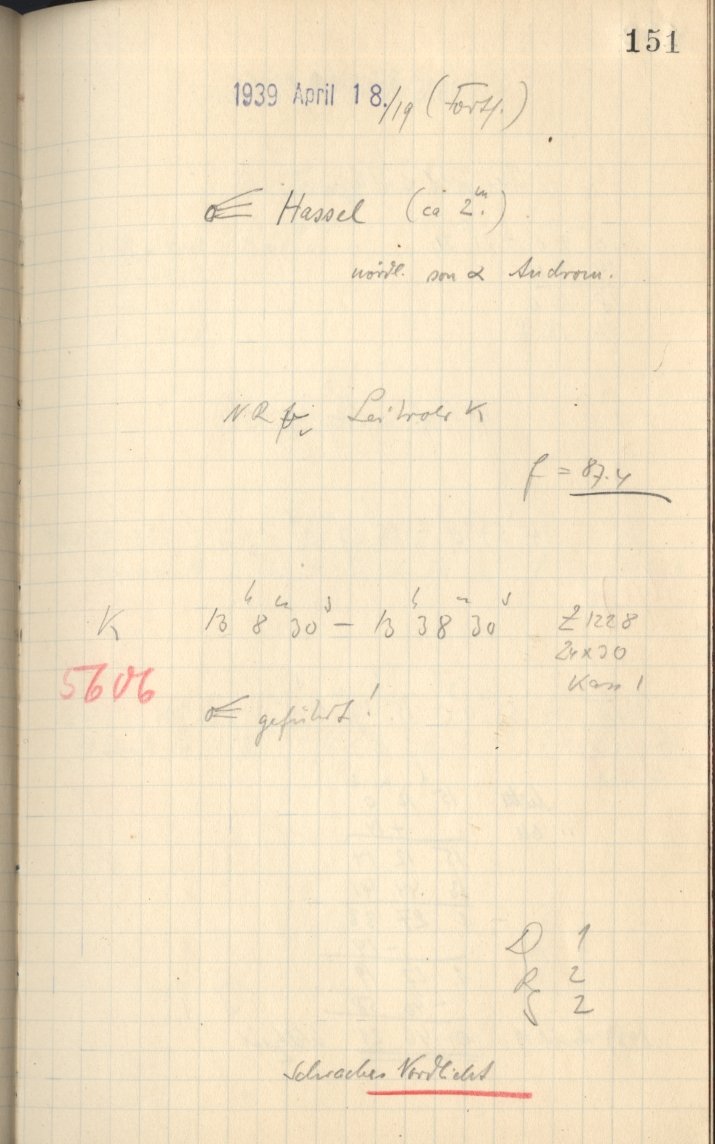 151
1939 April 18./19 (Forts.)
☄ Hassel (ca 2.ᵐ)
nördl. von α Androm.
N.R. Leitrohr K
f = 87.4
K 13ʰ 8ᵐ 30ˢ – 13ʰ 38ᵐ 30ˢ Z 1228
24×30
Kass 1
5606
☄ geführt!
D 1
R 2
S 2
Schwaches Nordlicht